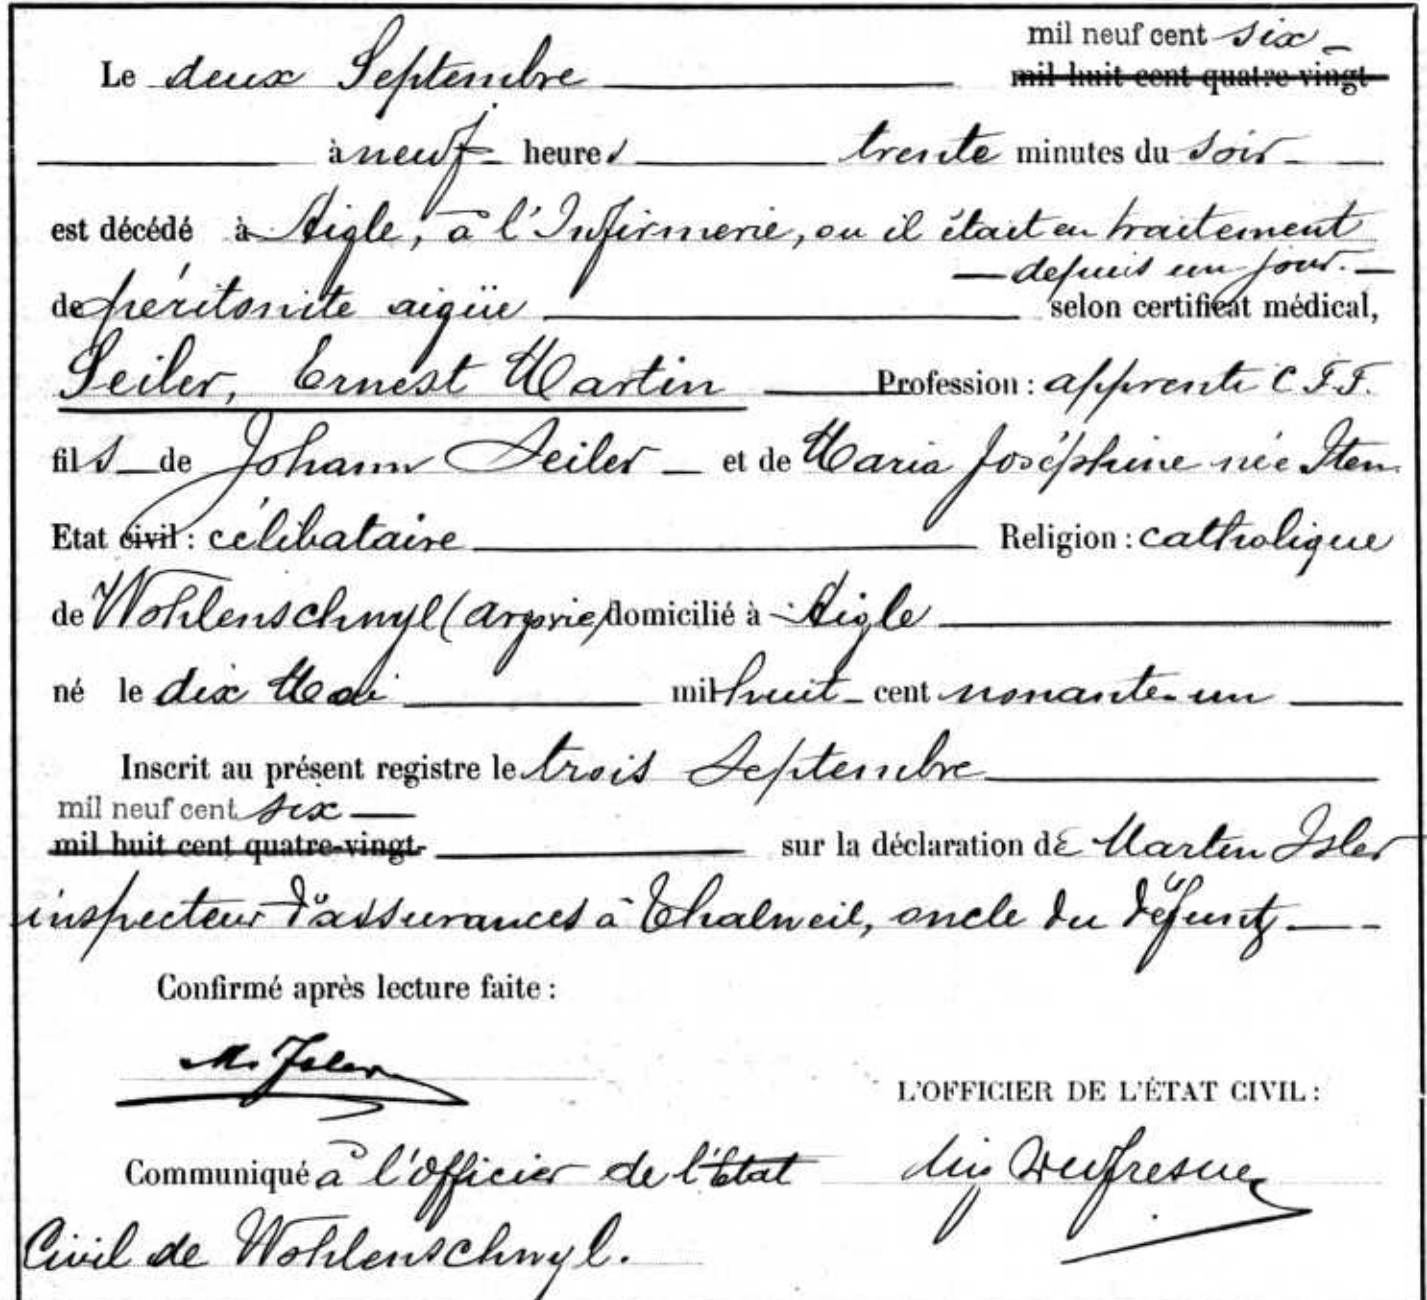 mil neuf cent six
Le deux Septembre mil huit cent quatre-vingt
à neuf heures trente minutes du soir
est décédé à Aigle, à l'Infirmerie, ou il était en traitement
depuis un jour.
de péritonite aigüe selon certificat médical,
Seiler, Ernest Martin Profession : apprenti C.F.F.
fils de Johann Seiler et de Maria Joséphine née Iten
Etat civil : célibataire Religion : catholique
de Wohlenschwyl (Argovie) domicilié à Aigle
né le dix Mai mil huit cent nonante-un
Inscrit au présent registre le trois Septembre
mil neuf cent six
mil huit cent quatre-vingt- sur la déclaration de Martin Isler
inspecteur d'assurances à Thalweil, oncle du défunt,
Confirmé après lecture faite :
M. Isler
L'OFFICIER DE L'ÉTAT CIVIL :
Communiqué à l'officier de l'Etat Dufresne
Civil de Wohlenschwyl.